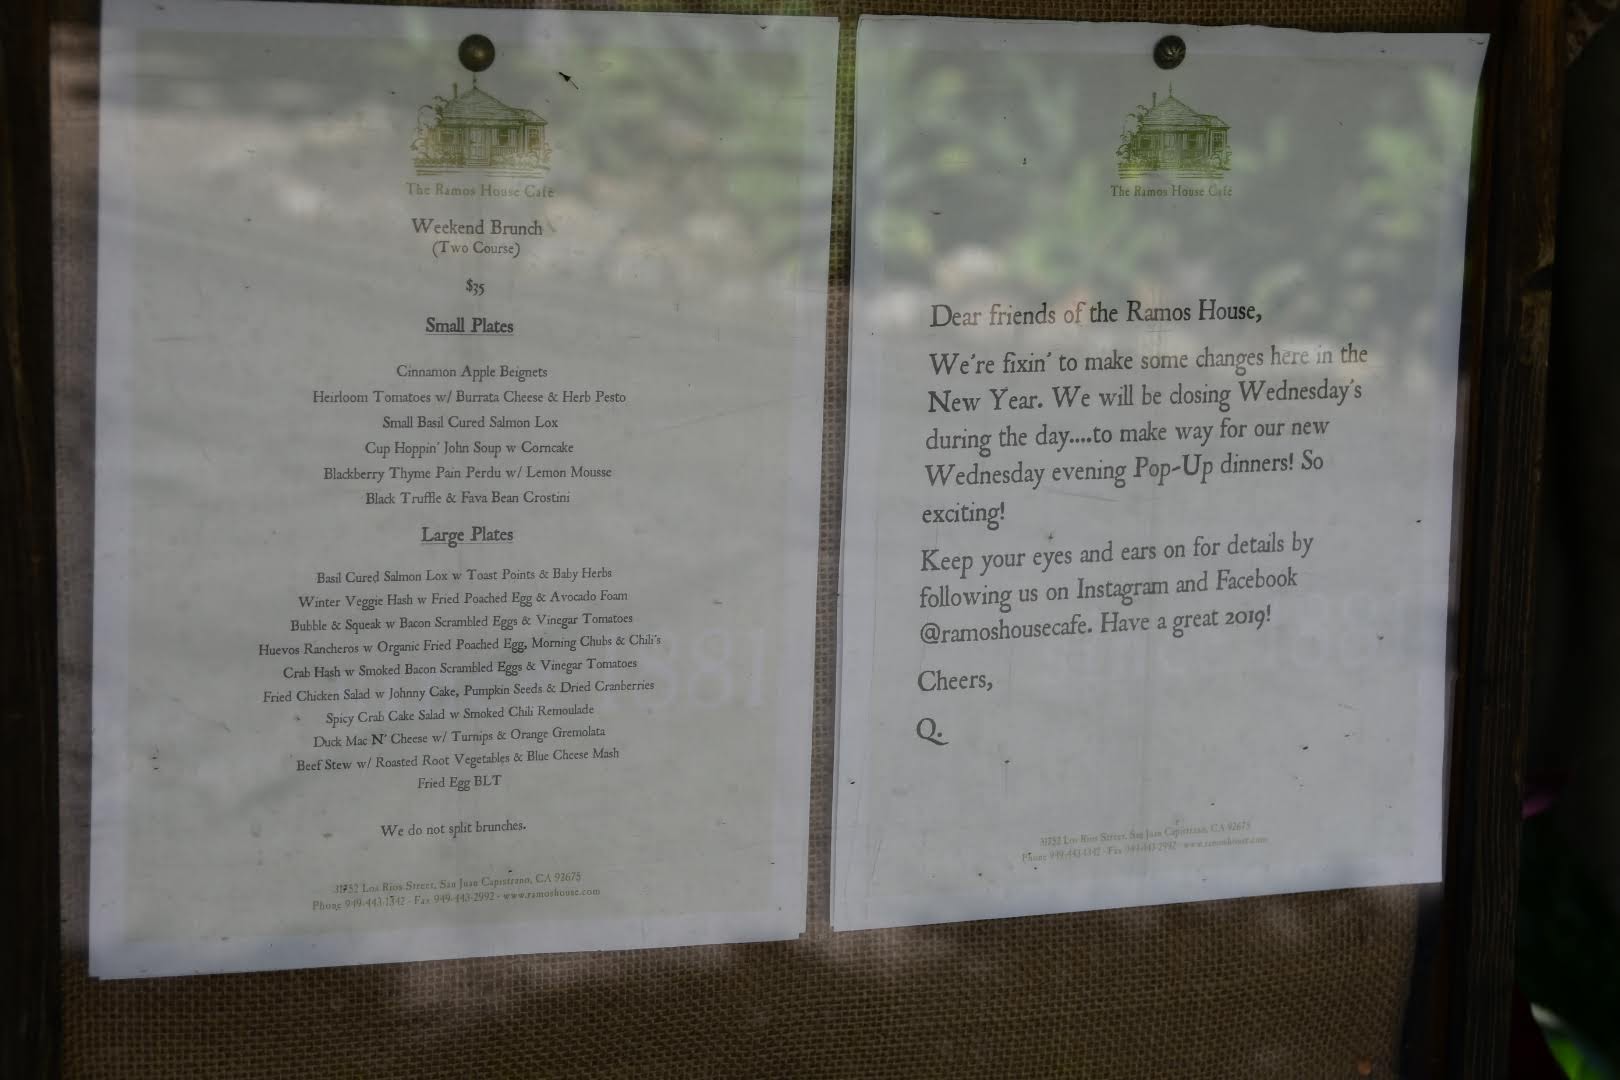 The Ramos House Café
Weekend Brunch
(Two Course)
$35
Small Plates
Cinnamon Apple Beignets
Heirloom Tomatoes w/ Burrata Cheese & Herb Pesto
Small Basil Cured Salmon Lox
Cup Hoppin' John Soup w Corncake
Blackberry Thyme Pain Perdu w/ Lemon Mousse
Black Truffle & Fava Bean Crostini
Large Plates
Basil Cured Salmon Lox w Toast Points & Baby Herbs
Winter Veggie Hash w Fried Poached Egg & Avocado Foam
Bubble & Squeak w Bacon Scrambled Eggs & Vinegar Tomatoes
Huevos Rancheros w Organic Fried Poached Egg, Morning Chubs & Chili's
Crab Hash w Smoked Bacon Scrambled Eggs & Vinegar Tomatoes
Fried Chicken Salad w Johnny Cake, Pumpkin Seeds & Dried Cranberries
Spicy Crab Cake Salad w Smoked Chili Remoulade
Duck Mac N' Cheese w/ Turnips & Orange Gremolata
Beef Stew w/ Roasted Root Vegetables & Blue Cheese Mash
Fried Egg BLT
We do not split brunches.
31752 Los Rios Street, San Juan Capistrano, CA 92675
Phone 949-443-1342 - Fax 949-443-2992 - www.ramoshouse.com
The Ramos House Café
Dear friends of the Ramos House,
We're fixin' to make some changes here in the
New Year. We will be closing Wednesday's
during the day....to make way for our new
Wednesday evening Pop-Up dinners! So
exciting!
Keep your eyes and ears on for details by
following us on Instagram and Facebook
@ramoshousecafe. Have a great 2019!
Cheers,
Q.
31752 Los Rios Street, San Juan Capistrano, CA 92675
Phone 949-443-1342 - Fax 949-443-2992 - www.ramoshouse.com